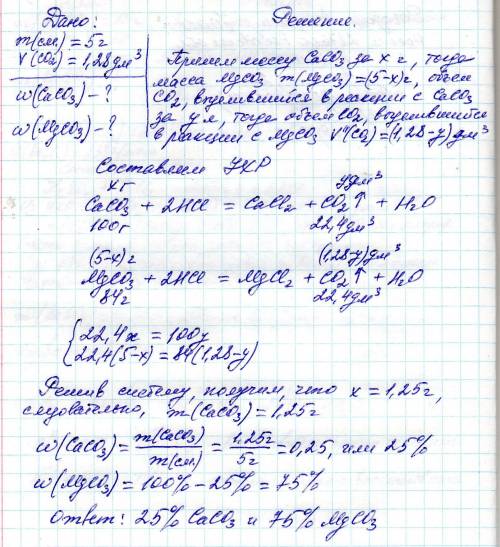 Дано:
m(см.) = 5г
V(CO₂) = 1,28 дм³
w(CaCO₃) - ?
w(MgCO₃) - ?
Решение.
Примем массу CaCO₃ за x г, тогда
масса MgCO₃ m(MgCO₃) = (5-x)г, объем
CO₂, выделившийся в реакции с CaCO₃
за y л, тогда объем CO₂, выделившийся
в реакции с MgCO₃ V(CO₂) = (1,28-y) дм³
Составляем УХР
xг yдм³
CaCO₃ + 2HCl = CaCl₂ + CO₂↑ + H₂O
100г 22,4дм³
(5-x)г (1,28-y)дм³
MgCO₃ + 2HCl = MgCl₂ + CO₂↑ + H₂O
84г 22,4дм³
{22,4x = 100y
22,4(5-x) = 84(1,28-y)
Решив систему, получим, что x = 1,25г,
следовательно, m(CaCO₃) = 1,25г
w(CaCO₃) = m(CaCO₃)/m(см.) = 1,25г/5г = 0,25, или 25%
w(MgCO₃) = 100% - 25% = 75%
Ответ: 25% CaCO₃ и 75% MgCO₃